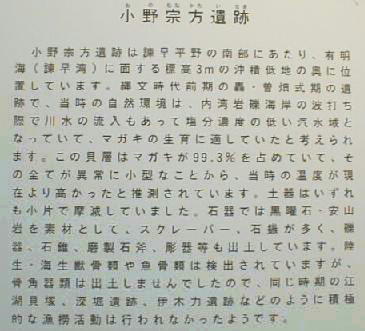 おのむなかたいせき
小野宗方遺跡
小野宗方遺跡は諫早平野の南部にあたり、有明
海（諫早湾）に面する標高3mの沖積低地の奥に位
置しています。縄文時代前期の轟・曽畑式期の遺
跡で、当時の自然環境は、内湾岩礁海岸の波打ち
際で川水の流入もあって塩分濃度の低い汽水域と
なっていて、マガキの生育に適していたと考えられ
ます。この貝層はマガキが99.3％を占めていて、そ
の全てが異常に小型なことから、当時の温度が現
在より高かったと推測されています。土器はいずれ
も小片で摩滅していました。石器では黒曜石・安山
岩を素材として、スクレーパー、石鏃が多く、礫
器、石錐、磨製石斧、彫器等も出土しています。陸
生・海生獣骨類や魚骨類は検出されていますが、
骨角器類は出土しませんでしたので、同じ時期の江
湖貝塚、深堀遺跡、伊木力遺跡などのように積極
的な漁撈活動は行われなかったようです。